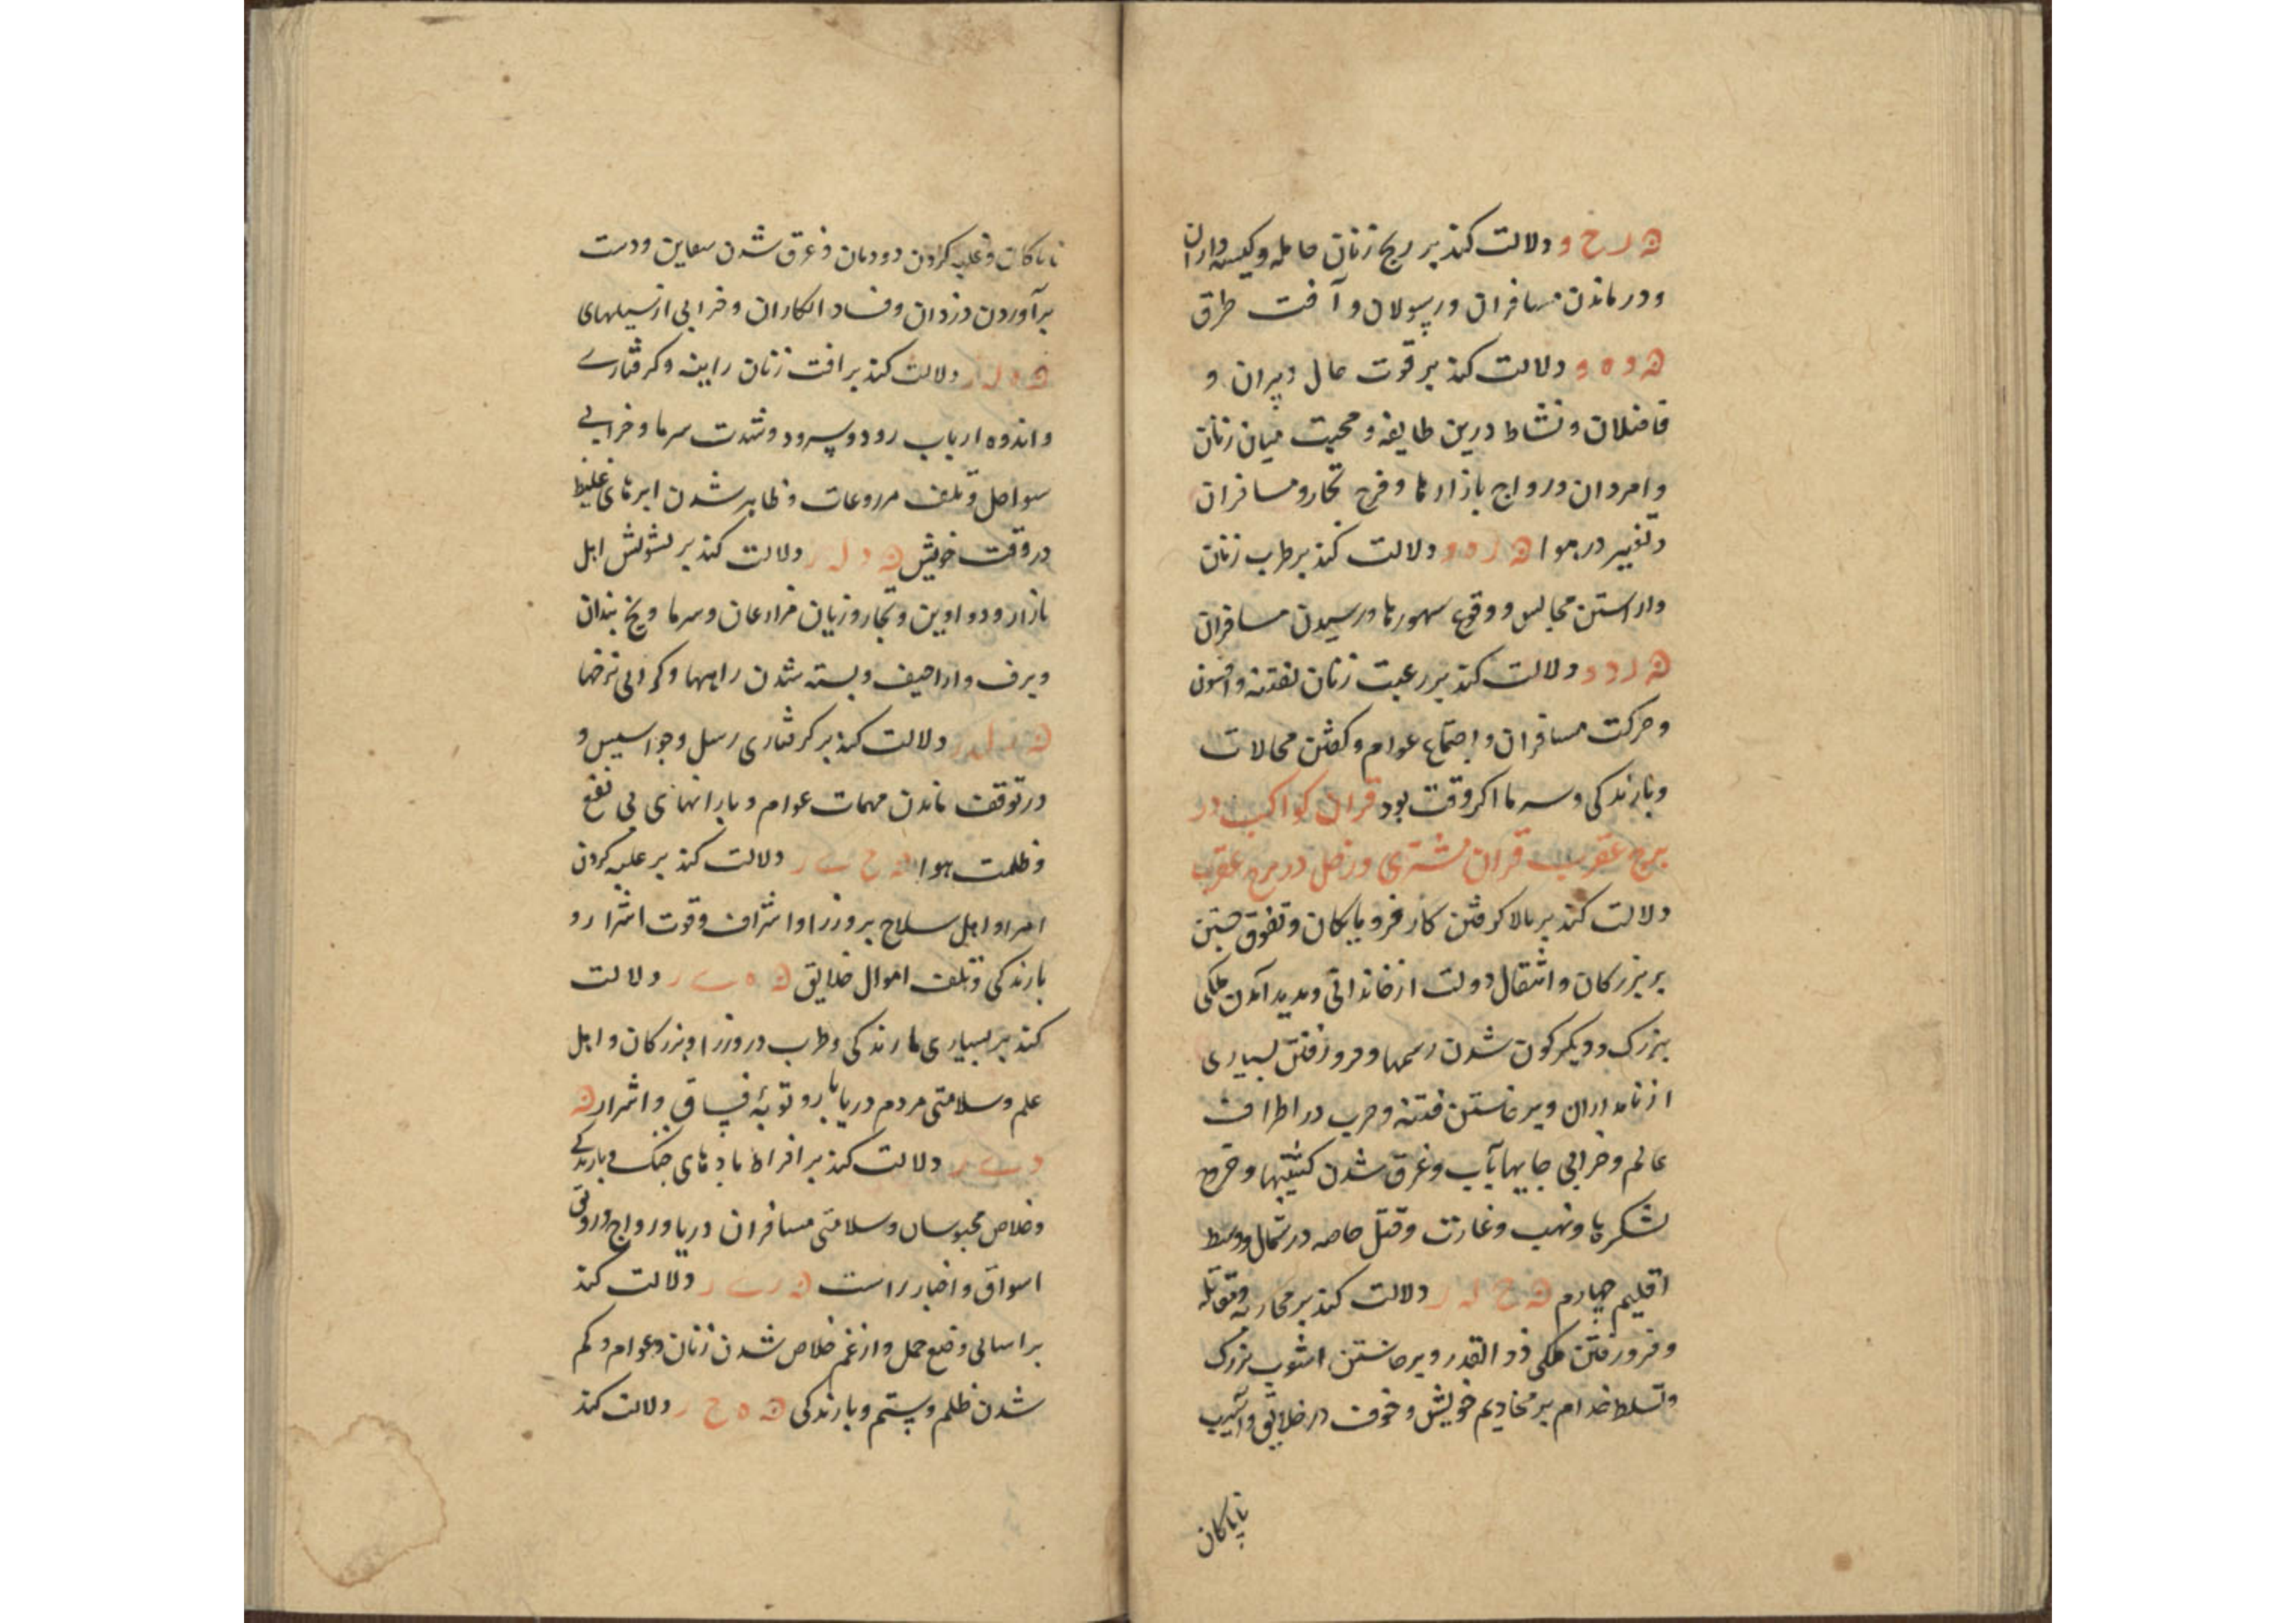 ﻪ ر ح و دلالت کند بر رنج زنان حامله و کیسه داران
و درماندن مسافران و رسولان و آفت طرق
ﻪ و ه و دلالت کند بر قوت حال دبیران و
فاضلان و نشاط درین طایفه و محبت میان زنان
و امردان و رواج بازارها و فرح تجار و مسافران
و تغییر در هوا ﻪ ر ه و دلالت کند بر طرب زنان
و اراستن مجالس و وقوع سورها و رسیدن مسافران
ﻪ ر د و دلالت کند بر رغبت زنان بفتنه و افسون
و حرکت مسافران و اجتماع عوام و کفتن محالات
و بارندکی و سرما اکر وقت بود قران کواکب در
برج عقرب قران مشتری و زحل در برج عقرب
دلالت کند بر بالا کرفتن کار فرومایکان و تفوق جستن
بر بزرکان و انتقال دولت از خاندانی و پدید آمدن ملکی
بزرک و دیکرکون شدن رسمها و فرو رفتن بسیاری
از نامداران و برخاستن فتنه و حرب در اطراف
عالم و خرابی جایها بآب و غرق شدن کشتیها و خروج
لشکرها و نهب و غارت و قتل خاصه در شمال و وسط
اقلیم چهارم ﻪ ح ل ر دلالت کند بر محاربه و مقاتله
و فرو رفتن ملکی ذو القدر و برخاستن اشوب بزرک
و تسلط خدام بر مخادیم خویش و خوف در خلایق و آسیب
ناپاکان
ناپاکان و غلبه کردن دودمان و غرق شدن سفاین و دست
برآوردن دزدان و فساد انکاران و خرابی از سیلهای
ﻪ ه ل ر دلالت کند بر افت زنان رابیه و کرفتاری
و اندوه ارباب رود و سرود و شدت سرما و خرابی
سواحل و تلف مزروعات و ظاهر شدن ابرهای غلیظ
در وقت خویش ﻪ د ل ر دلالت کند بر تشویش اهل
بازار و دواوین و تجار و زیان مزارعان و سرما و یخ بندان
و برف و اراجیف و بسته شدن راهها و کرانی نرخها
ﻪ ر ل ر دلالت کند بر کرفتاری رسل و جواسیس و
در توقف ماندن مهمات عوام و بارانهای بی نفع
و ظلمت هوا ﻪ ح ی ر دلالت کند بر غلبه کردن
امرا و اهل سلاح بر وزرا و اشراف و قوت اشرار و
بارندکی و تلف اموال خلایق ﻪ ه ی ر دلالت
کند بر بسیاری بارندکی و طرب در وزرا و بزرکان و اهل
علم و سلامتی مردم دریابار و توبهٔ فساق و اشرار ﻪ
د ی ر دلالت کند بر افراط بادهای خنک و بارندکی
و خلاص محبوسان و سلامتی مسافران دریا و رواج و رونق
اسواق و اخبار راست ﻪ ر ی ر دلالت کند
بر اسانی وضع حمل و از غم خلاص شدن زنان و عوام و کم
شدن ظلم و ستم و بارندکی ﻪ ه ح ر دلالت کند